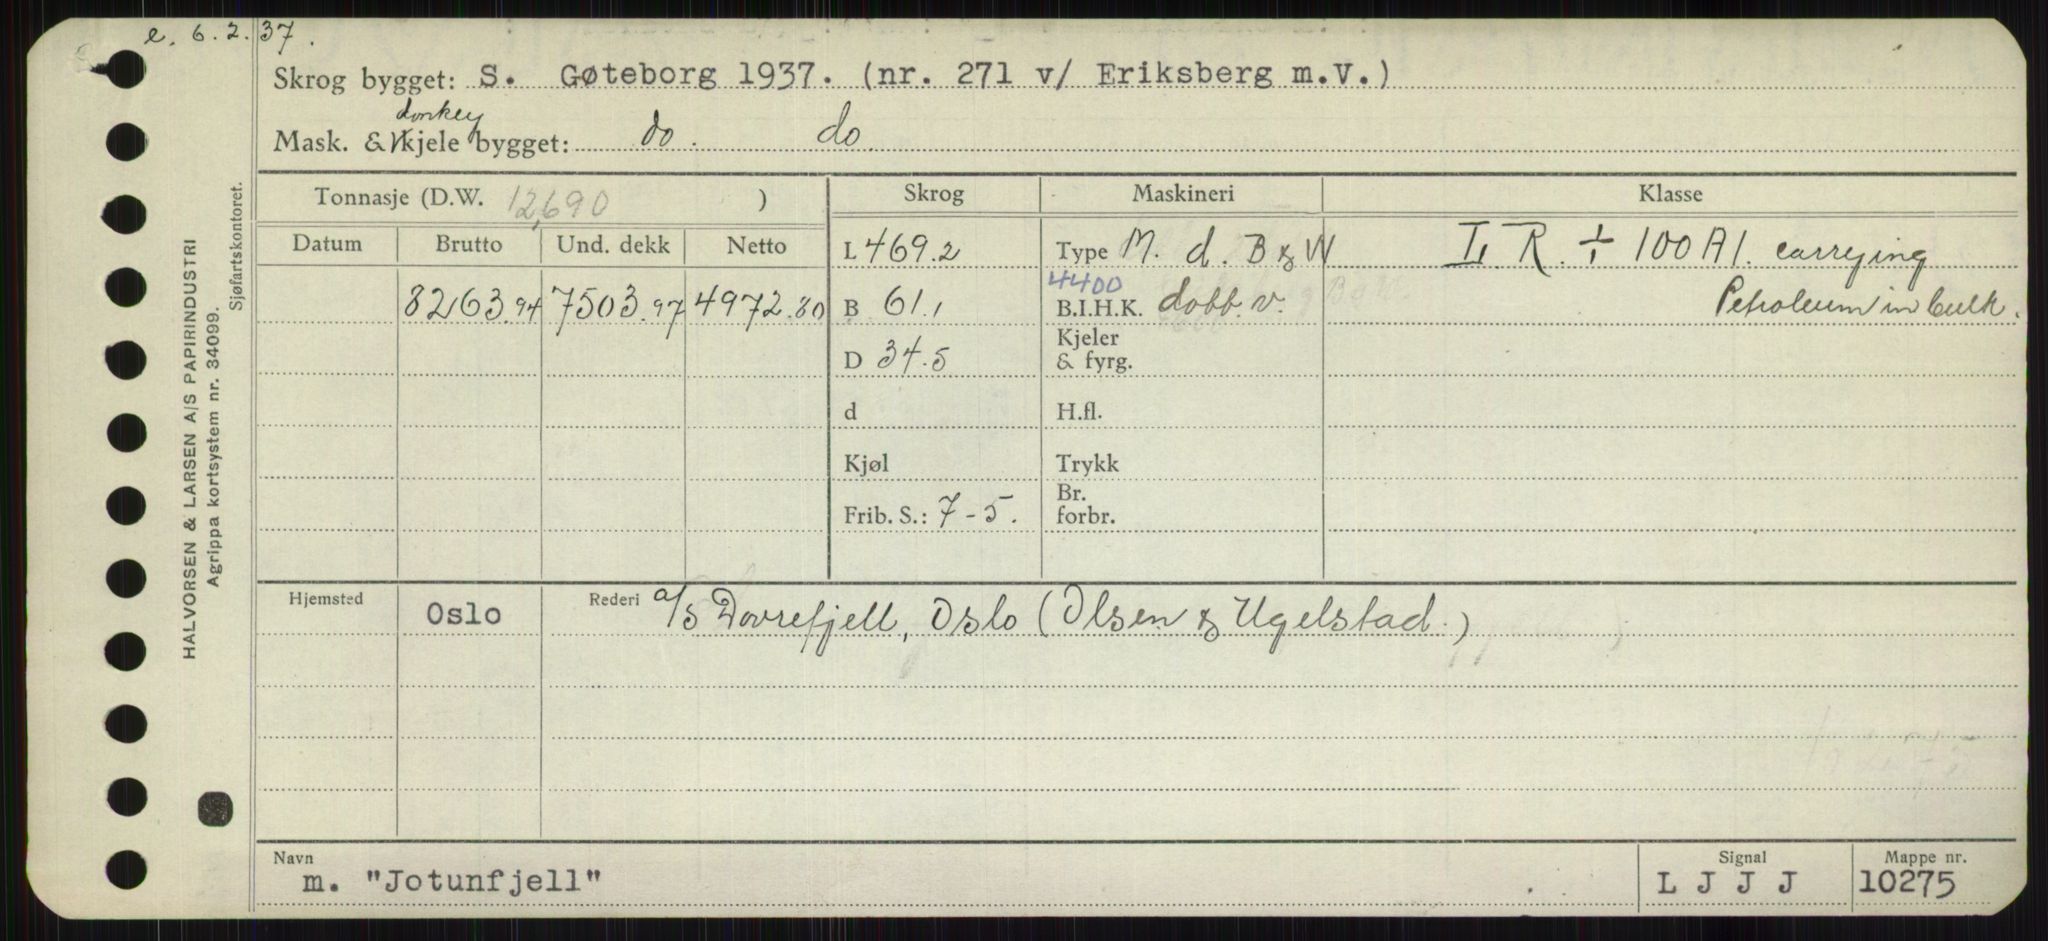 e. 6.2.37.
Skrog bygget: S. Gøteborg 1937. (nr. 271 v/ Eriksberg m.V.)
donkey
Mask. & kjele bygget: do. do.
Tonnasje (D.W. 12,690 )
Skrog Maskineri Klasse
Datum Brutto Und. dekk Netto
L 469.2 Type M. d. B & W L. R. ÷ 100 A1. carrying
4400
8263.94 7503.97 4972.80 B 61.1 B.I.H.K. dobb. v. Petroleum in bulk.
D 34.5 Kjeler & fyrg.
d H.fl.
Kjøl Trykk
Frib. S.: 7-5. Br. forbr.
Hjemsted Oslo Rederi a/s Dovrefjell, Oslo (Olsen & Ugelstad.)
Navn Signal Mappe nr.
m. "Jotunfjell" L J J J 10275
HALVORSEN & LARSEN A/S PAPIRINDUSTRI
Agrippa kortsystem nr. 34099.
Sjøfartskontoret.